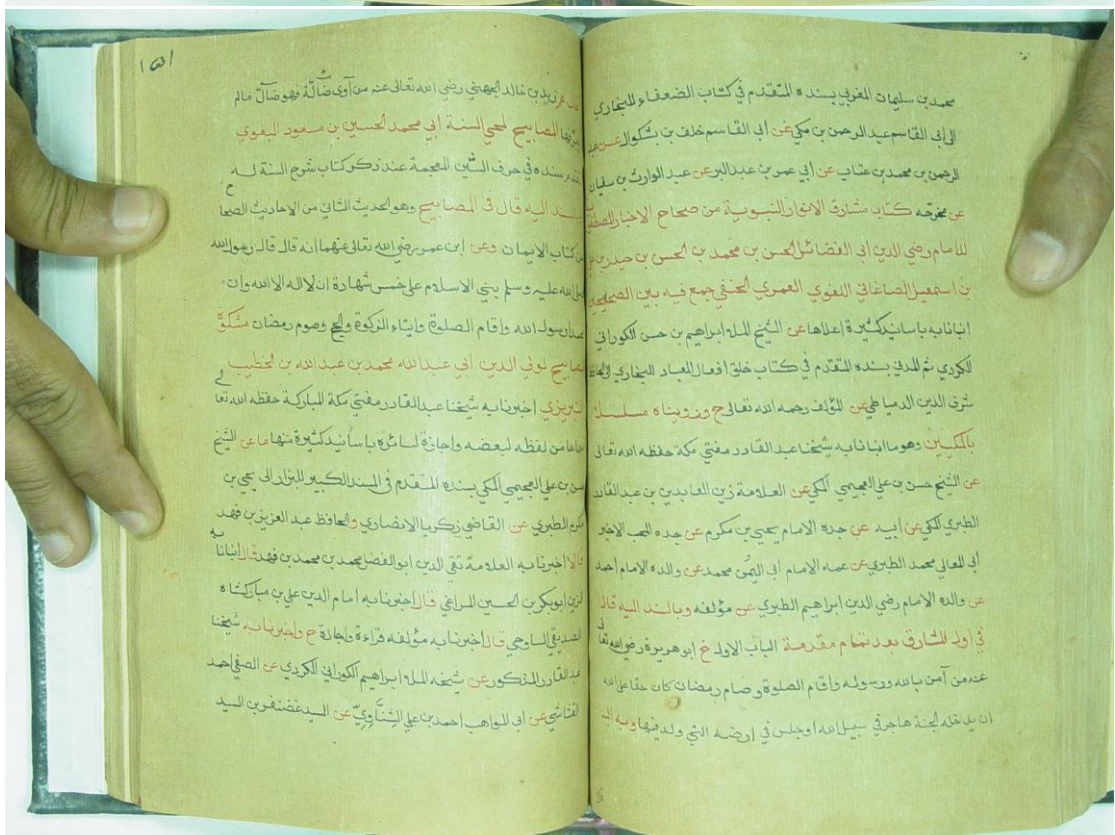 محمد بن سليمان المغربي بسنده المتقدم في كتاب الضعفاء للبخاري
الى ابى القاسم عبد الرحمن بن مكي عن ابى القاسم خلف بن بشكوال عن عبد
الرحمن بن محمد بن عتاب عن ابي عمر بن عبد البر عن عبد الوارث بن سفيان
عن مخرّجه كتاب مشارق الانوار النبوية من صحاح الاخبار المصطفوية
للامام رضي الدين ابى الفضائل الحسن بن محمد بن الحسن بن حيدر بن علي
بن اسمعيل الصاغاني اللغوي العمري الحنفي جمع فيه بين الصحيحين
انبانا به باسانيد كثيرة اعلاها عن الشيخ الملا ابراهيم بن حسن الكوراني
الكردي ثم المدني بسنده المتقدم في كتاب خلق افعال العباد للبخاري الى الحافظ
شرف الدين الدمياطي عن المؤلف رحمه الله تعالى ح ورويناه مسلسل
بالمكيين وهو ما انبانا به شيخنا عبد القادر مفتي مكة حفظه الله تعالى
عن الشيخ حسن بن علي العجيمي المكي عن العلامة زين العابدين بن عبد القادر
الطبري المكي عن ابيه عن جده الامام يحيى بن مكرم عن جده المحب الاخير
أبي المعالي محمد الطبري عن عمه الامام ابى اليمن محمد عن والده الامام احمد
عن والده الامام رضي الدين ابراهيم الطبري عن مؤلفه وبالسند اليه قال
في اول المشارق بعد تمام مقدمة الباب الاول خ ابو هريرة رضي الله تعالى
عنه من آمن بالله ورسوله واقام الصلوة وصام رمضان كان حقا على الله
ان يدخله الجنة هاجر في سبيل الله او جلس في ارضه التي ولد فيها وبه اليه
١٥١
قال عن زيد بن خالد الجهني رضي الله تعالى عنه من آوى ضالّة فهو ضالّ مالم
يعرّفها المصابيح لمحي السنة ابي محمد الحسين بن مسعود البغوي
تقدم سنده في حرف الشين المعجمة عند ذكر كتاب شرح السنة له
بالسند اليه قال في المصابيح وهو الحديث الثاني من الاحاديث الصحاح
من كتاب الايمان وعن ابن عمر رضي الله تعالى عنهما انه قال قال رسول الله
صلى الله عليه وسلم بني الاسلام على خمس شهادة ان لا اله الا الله وان
محمدا رسول الله واقام الصلوة وايتاء الزكوة والحج وصوم رمضان مشكوة
المصابيح لولي الدين ابي عبد الله محمد بن عبد الله بن الخطيب
التبريزي اخبرنا به شيخنا عبد القادر مفتي مكة المباركة حفظه الله تعالى
سماعا من لفظه لبعضه واجازة لسائره باسانيد كثيرة منها ما عن الشيخ
حسن بن علي العجيمي المكي بسنده المتقدم في المسند الكبير للبزار الى يحيى بن
مكرم الطبري عن القاضي زكريا الانصاري والحافظ عبد العزيز بن فهد
قالا اخبرنا به العلامة تقي الدين ابو الفضل محمد بن محمد بن فهد قال انبانا به
الزين ابو بكر بن الحسين المراغي قال اخبرنا به امام الدين علي بن مباركشاه
الصديقي الساوجي قال اخبرنا به مؤلفه قراءة واجازة ح واخبرنا به شيخنا
عبد القادر المذكور عن شيخه الملا ابراهيم الكوراني الكردي عن الصفي احمد
القشاشي عن ابى المواهب احمد بن علي الشِنَّاويّ عن السيد غضنفر بن السيد